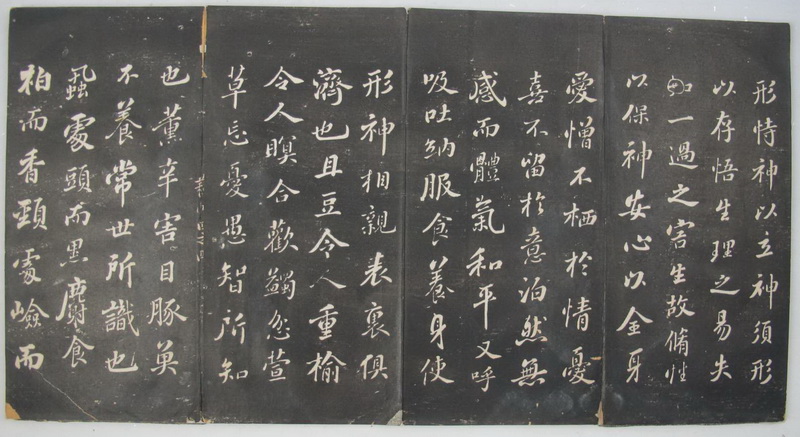 形恃神以立神須形
以存悟生理之易失
知一過之害生故脩性
以保神安心以全身
愛憎不栖於情憂
喜不留於意泊然無
感而體氣和平又呼
吸吐納服食養身使
形神相親表裏俱
濟也且豆令人重榆
令人瞑合歡蠲忿萱
草忘憂愚智所知
也薰辛害目豚魚
不養常世所識也
蝨處頭而黑麝食
柏而香頸處嶮而